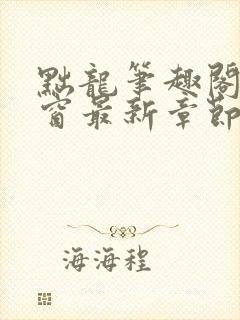 點龍筆趣閣
窗最新章節
海海程